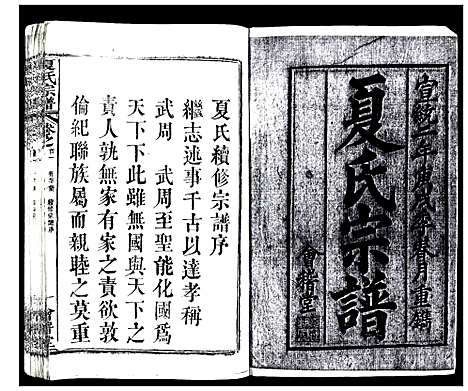 宣統二年庚戌季春月重鐫
夏氏宗譜
會稽堂
夏氏續修宗譜序
繼志述事千古以達孝稱
武周　武周至聖能化國為
天下下此雖無國與天下之
責人孰無有家之責欲敦
倫紀聯族屬而親睦之莫重
夏氏宗譜
會稽堂